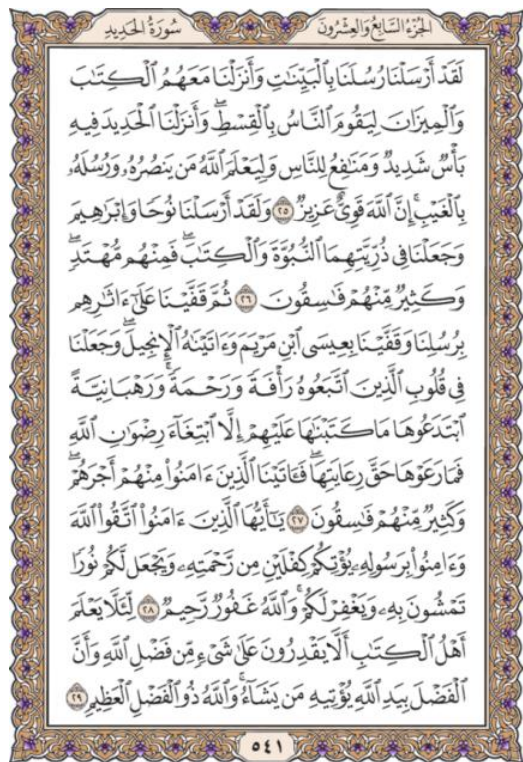 الجزء السابع والعشرون
سورة الحديد
لَقَدْ أَرْسَلْنَا رُسُلَنَا بِالْبَيِّنَٰتِ وَأَنزَلْنَا مَعَهُمُ الْكِتَٰبَ
وَالْمِيزَانَ لِيَقُومَ النَّاسُ بِالْقِسْطِ ۖ وَأَنزَلْنَا الْحَدِيدَ فِيهِ
بَأْسٌ شَدِيدٌ وَمَنَٰفِعُ لِلنَّاسِ وَلِيَعْلَمَ اللَّهُ مَن يَنصُرُهُۥ وَرُسُلَهُۥ
بِالْغَيْبِ ۚ إِنَّ اللَّهَ قَوِيٌّ عَزِيزٌ ٢٥ وَلَقَدْ أَرْسَلْنَا نُوحًا وَإِبْرَٰهِيمَ
وَجَعَلْنَا فِي ذُرِّيَّتِهِمَا النُّبُوَّةَ وَالْكِتَٰبَ ۖ فَمِنْهُم مُّهْتَدٍ ۖ
وَكَثِيرٌ مِّنْهُمْ فَٰسِقُونَ ٢٦ ثُمَّ قَفَّيْنَا عَلَىٰٓ ءَاثَٰرِهِم
بِرُسُلِنَا وَقَفَّيْنَا بِعِيسَى ابْنِ مَرْيَمَ وَءَاتَيْنَٰهُ الْإِنجِيلَ ۖ وَجَعَلْنَا
فِي قُلُوبِ الَّذِينَ اتَّبَعُوهُ رَأْفَةً وَرَحْمَةً ۚ وَرَهْبَانِيَّةً
ابْتَدَعُوهَا مَا كَتَبْنَٰهَا عَلَيْهِمْ إِلَّا ابْتِغَآءَ رِضْوَٰنِ اللَّهِ
فَمَا رَعَوْهَا حَقَّ رِعَايَتِهَا ۖ فَـَٔاتَيْنَا الَّذِينَ ءَامَنُوا۟ مِنْهُمْ أَجْرَهُمْ ۖ
وَكَثِيرٌ مِّنْهُمْ فَٰسِقُونَ ٢٧ يَٰٓأَيُّهَا الَّذِينَ ءَامَنُوا۟ اتَّقُوا۟ اللَّهَ
وَءَامِنُوا۟ بِرَسُولِهِۦ يُؤْتِكُمْ كِفْلَيْنِ مِن رَّحْمَتِهِۦ وَيَجْعَل لَّكُمْ نُورًا
تَمْشُونَ بِهِۦ وَيَغْفِرْ لَكُمْ ۚ وَاللَّهُ غَفُورٌ رَّحِيمٌ ٢٨ لِّئَلَّا يَعْلَمَ
أَهْلُ الْكِتَٰبِ أَلَّا يَقْدِرُونَ عَلَىٰ شَىْءٍ مِّن فَضْلِ اللَّهِ ۙ وَأَنَّ
الْفَضْلَ بِيَدِ اللَّهِ يُؤْتِيهِ مَن يَشَآءُ ۚ وَاللَّهُ ذُو الْفَضْلِ الْعَظِيمِ ٢٩
٥٤١